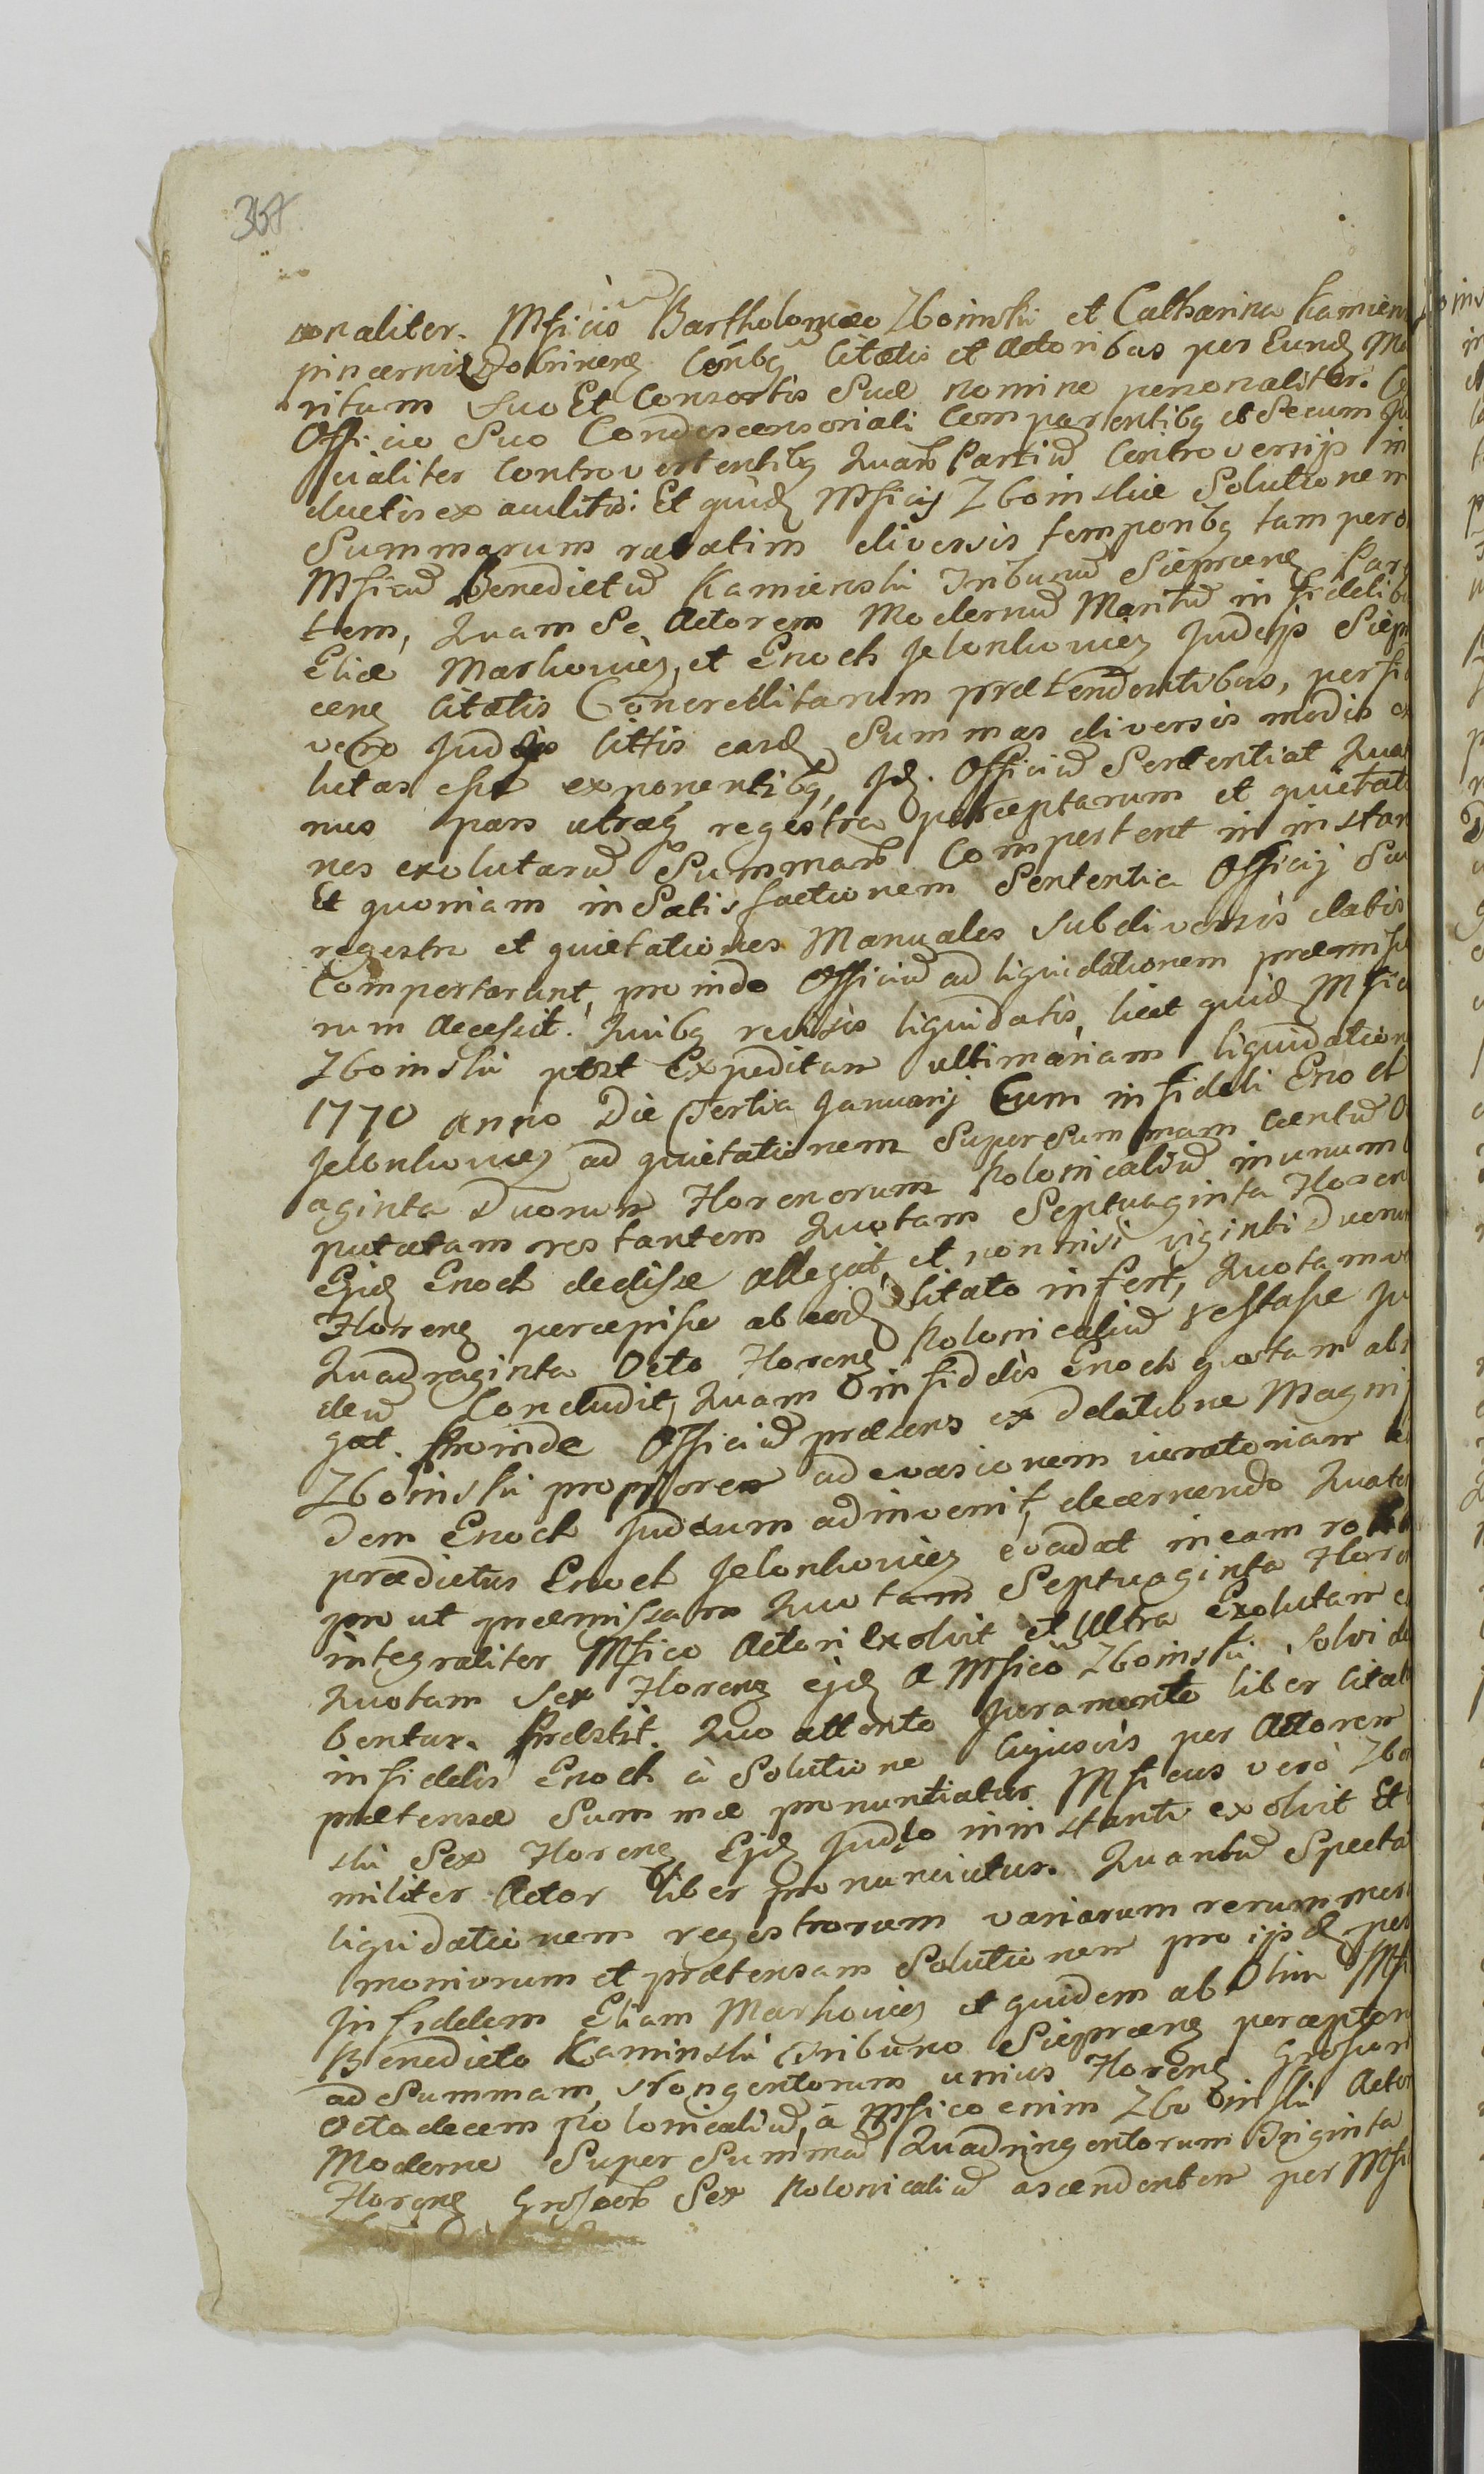 367
onaliter. Mficis Bartholomæo Zboinski et Catharina Kamiens
pincernis Dobrinenę Conbq Citatis et Actoribus per Eundę Ma
ritum suo Et Consortis Suæ nomine personaliter. Co
Officio Suo Condescensoriali Comparentibq et Secum Ju
cialiter Controvertentibq Quarꝫ Partiū Controversijs in
ductis ex auditis: Et quidę Mficij Zboinskie Solutionem
Summarum ratatim diversis temporibq tam per o
Mficū Benedictū Kamienski Tribunū Sieprcenę Par
tem, Quam Se Actorem Modernū Maritū infidelibu
Eliæ Markowicz, et Enoch Jelonkowicz Judæjs Siepr
cenę Citatis Concreditarum prætendentibus, perfi
vero Judæjs Cittis easdę Summas diversis modis ex
lutas esse exponentibq, Idę. Officiū Sententiat Quat
nus pars utraq regestra perceptarum et quietatio
nes exolutarū Summarꝫ Comportent in instan
Et quoniam in Satisfactionem Sententia Officij Sui
regestra et quietationes Manuales sub diversis datis
Comportarunt, proinde Officiū ad liquidationem præmisso
rum Accessit. Quibq revisis liquidatis, licet quidę Mficu
Zboinski post Expeditam ultimariam liquidation
1770 anno Die Tertia Januarij Cum infideli Enoch
Jelonkowicz ad quietationem Super Summam Centū O
aginta Duorum Florenorum Polonicaliū in unum
putatam restantem Quotam Septuaginta Floren
Ejdę Enoch dedisse allegat, et non nisi viginti Duorum
Florenę percepisse ab eodę Citato infert, Quotam ve
Quadraginta Octo Florenę Polonicaliū restasse Ju
deū Concludit, Quam infidelis Enoch quotam abne
gat. Proinde Officiū præsens ex Delatione Magnifi
Zboinski propriorem ad evasionem iuratoriam e
dem Enoch Judæum adinvenit, decernendo Quate
prædictus Enoch Jelonkowicz evadat in eam rotha
prout præmissam Quotam Septuaginta Floren
integraliter Mfico Actori Exolvit et Ultra Exolutam e
Quotam Sex Florenę ejdę a Mfico Zboinski solvi de
bentur. Præstit. Quo attento Juramento liber Citat
infidelis Enoch à Solutione Cujusvis per Actorem
prætensæ Summæ pronuntiatur Mficus verò Zboi
ski Sex Florenę Ejdę Judæo in instanti exolvit Et
militer Actor liber pronunciatur. Quantū Spectat
liquidationem regestrorum variarum rerum mer
moniorum et prætensam Solutionem pro ijsdę per
Infidelem Eliam Markowicz et quidem ab Olim Mfi
Benedicto Kaminski Tribuno Sieprcenę percepton
ad Summam Nongentorum unius Florenę Grossor
Octodecem polonicaliū, à Mfico enim Zboinski Actor
Moderne Super Summā Quadringentorum Triginta
Florenę Grossorꝫ Sex Polonicaliū ascendentem per Mfi